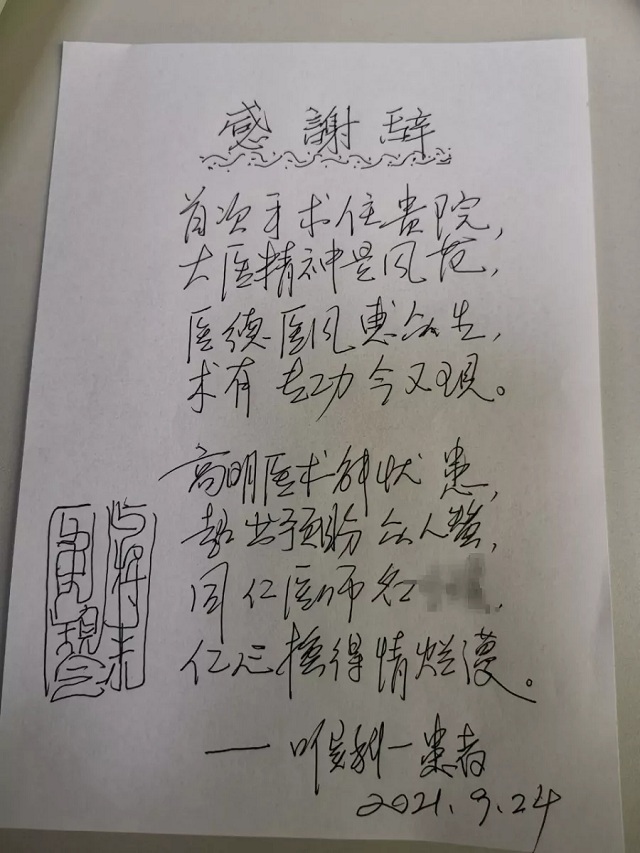 感謝辞
首次手术住贵院，
大医精神是风范，
医德医风惠众生，
术有专功今又现。
高明医术解忧患，
众人赞，
同仁医师名
仁心换得情烂漫。
一患者
2021.9.24